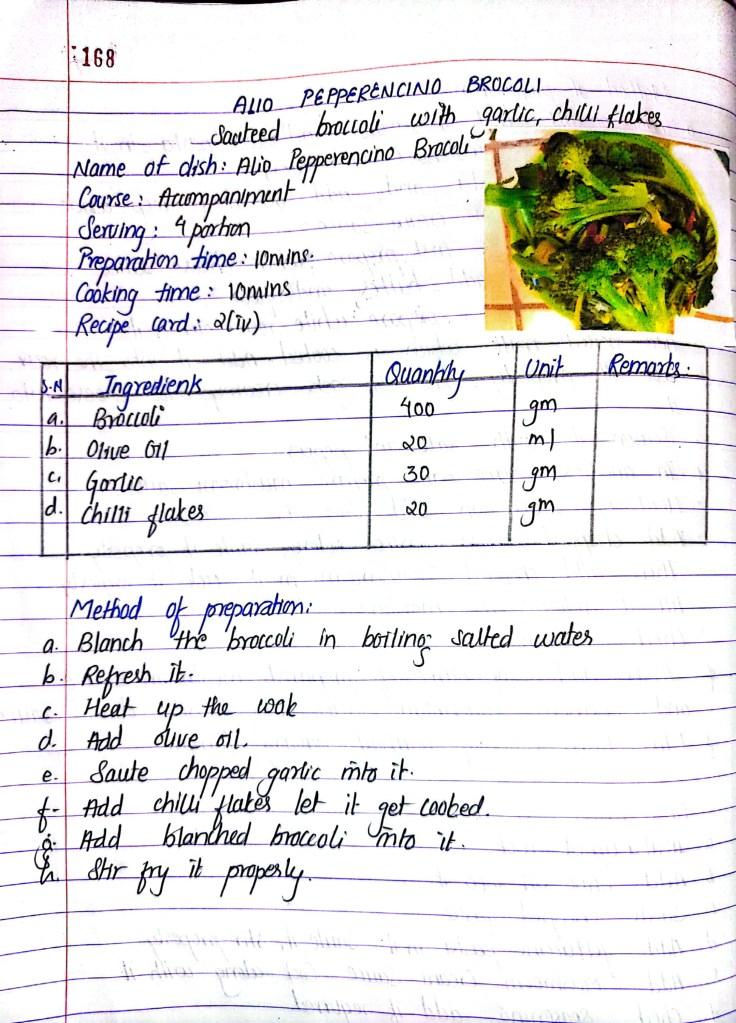 168
ALIO PEPPERENCINO BROCOLI
Sauteed broccoli with garlic, chilli flakes
Name of dish: Alio Pepperencino Brocoli
Course: Accompaniment
Serving: 4 portion
Preparation time: 10mins.
Cooking time: 10mins
Recipe card: 2(iv)
S.N Ingredients Quantity Unit Remarks.
a. Broccoli 400 gm
b. Olive Oil 20 ml
c. Garlic 30 gm
d. Chilli flakes 20 gm
Method of preparation:
a. Blanch the broccoli in boiling salted water
b. Refresh it.
c. Heat up the wok
d. Add olive oil.
e. Saute chopped garlic into it.
f. Add chilli flakes let it get cooked.
g. Add blanched broccoli into it.
h. Stir fry it properly.